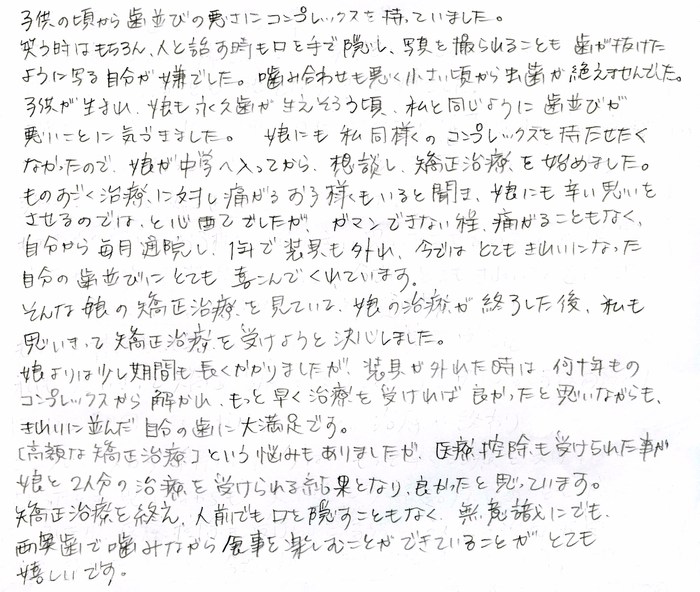 子供の頃から歯並びの悪さにコンプレックスを持っていました。
笑う時はもちろん、人と話す時も口を手で隠し、写真を撮られることも歯が抜けた
ように写る自分が嫌でした。噛み合わせも悪く小さい頃から虫歯が絶えませんでした。
子供が生まれ、娘も永久歯が生えそろう頃、私と同じように歯並びが
悪いことに気づきました。娘にも私同様くのコンプレックスを持たせたく
なかったので、娘が中学へ入ってから、相談し、矯正治療を始めました。
ものすごく治療に対し痛がるお子様もいると聞き、娘にも辛い思いを
させるのでは、と心配でしたが、ガマンできない程、痛がることもなく、
自分から毎月通院し、1年で装具も外れ、今ではとてもきれいになった
自分の歯並びにとても喜こんでくれています。
そんな娘の矯正治療を見ていて、娘の治療が終了した後、私も
思いきって矯正治療を受けようと決心しました。
娘よりは少し期間も長くかかりましたが、装具が外れた時は、何十年もの
コンプレックスから解かれ、もっと早く治療を受ければ良かったと思いながらも、
きれいに並んだ自分の歯に大満足です。
「高額な矯正治療」という悩みもありましたが、医療控除も受けられた事が
娘と2人分の治療を受けられる結果となり、良かったと思っています。
矯正治療を終え、人前でも口を隠すこともなく、無意識にでも、
両奥歯で噛みながら食事を楽しむことができていることがとても
嬉しいです。